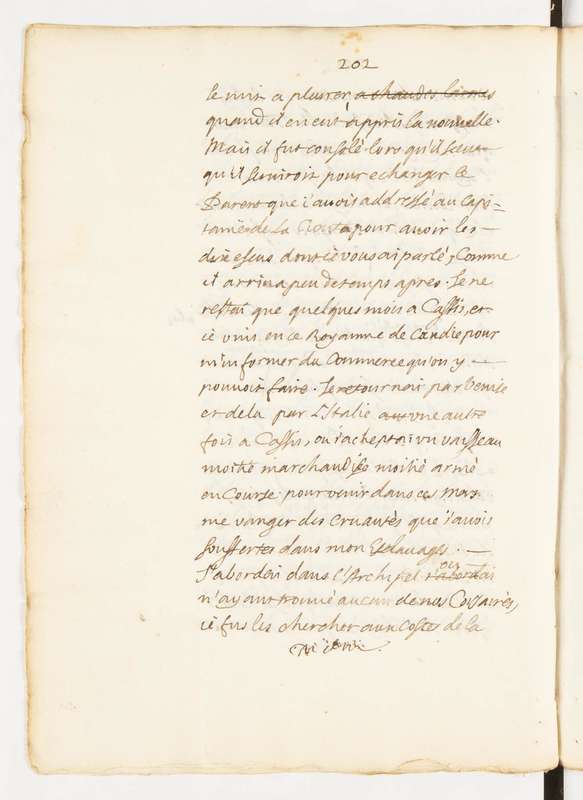 202
se mit a pleurer a chaudes larmes
quand il en eut appris la nouvelle.
Mais il fut consolé lors qu'il sceut
qu'il serviroit pour echanger le
Parent que i'avois addressé au Capi=
taine de la pour avoir les
dix escus dont ie vous ai parlé, Comme
il arriva peu de temps apres. Je ne
restai que quelques mois a Cassis, et
ie vins en ce Royaume de Candie pour
m'informer du Commerce qu'on y
pouvoit faire. Je retournai par Venise
et de la par L'Italie une autre
fois a Cassis, ou i'acheptai un vaisseau
moitié marchandise moitié armé
en Course pour venir dans ces Mers
me vanger des Cruautés que i'avois
souffertes dans mon Esclavage.
J'abordai dans l'Archipel ou
n'ayant trouvé aucun de nos Corsaires,
ie fus les chercher aux Costes de la